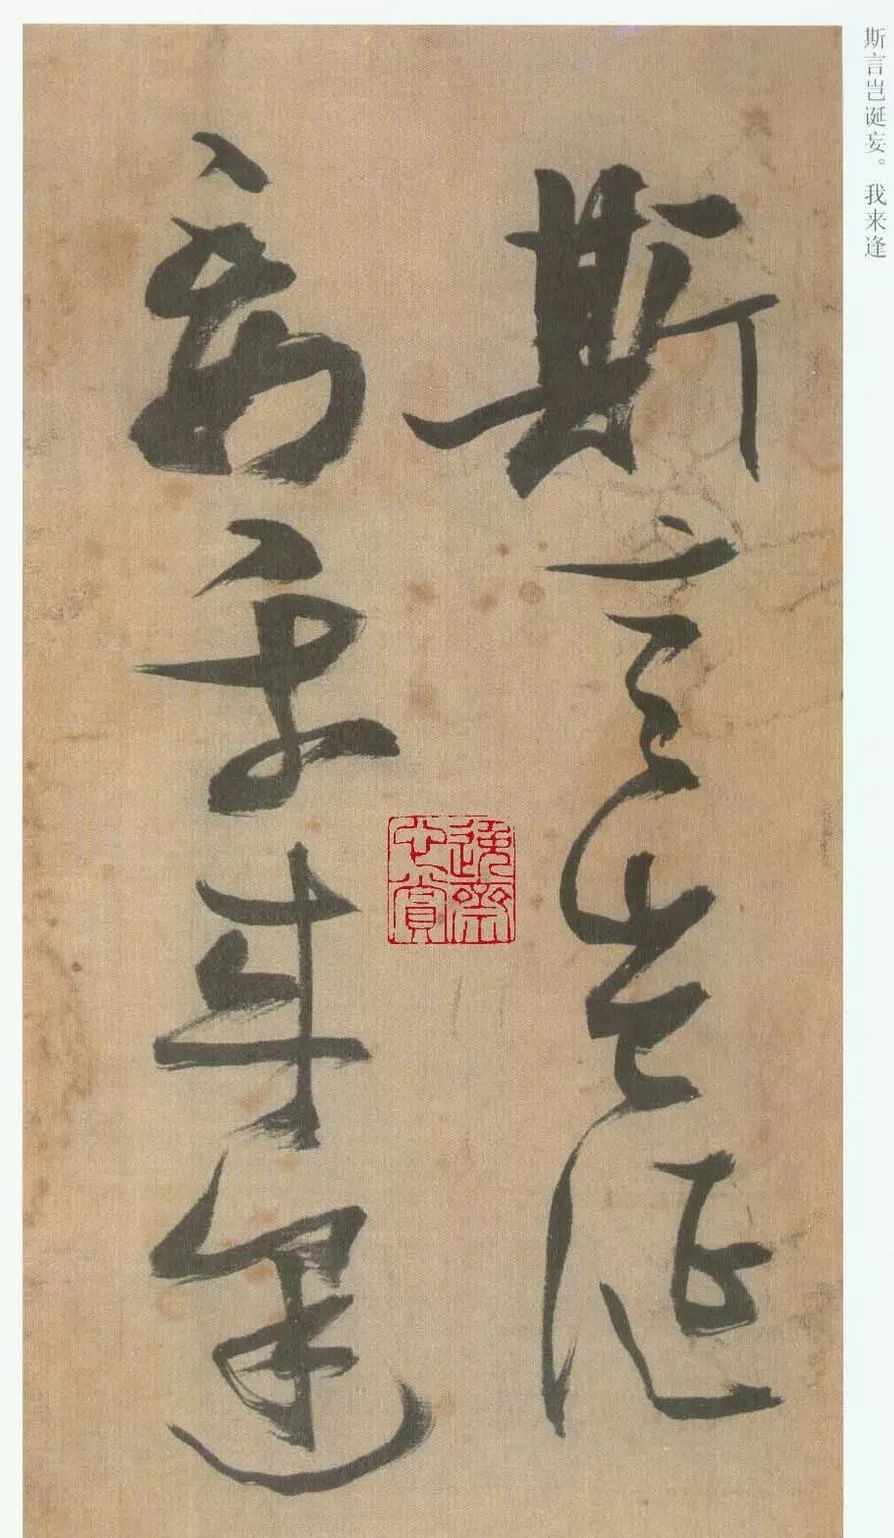 斯言岂诞妄。我来逢
斯言豈誕
妄我來逢